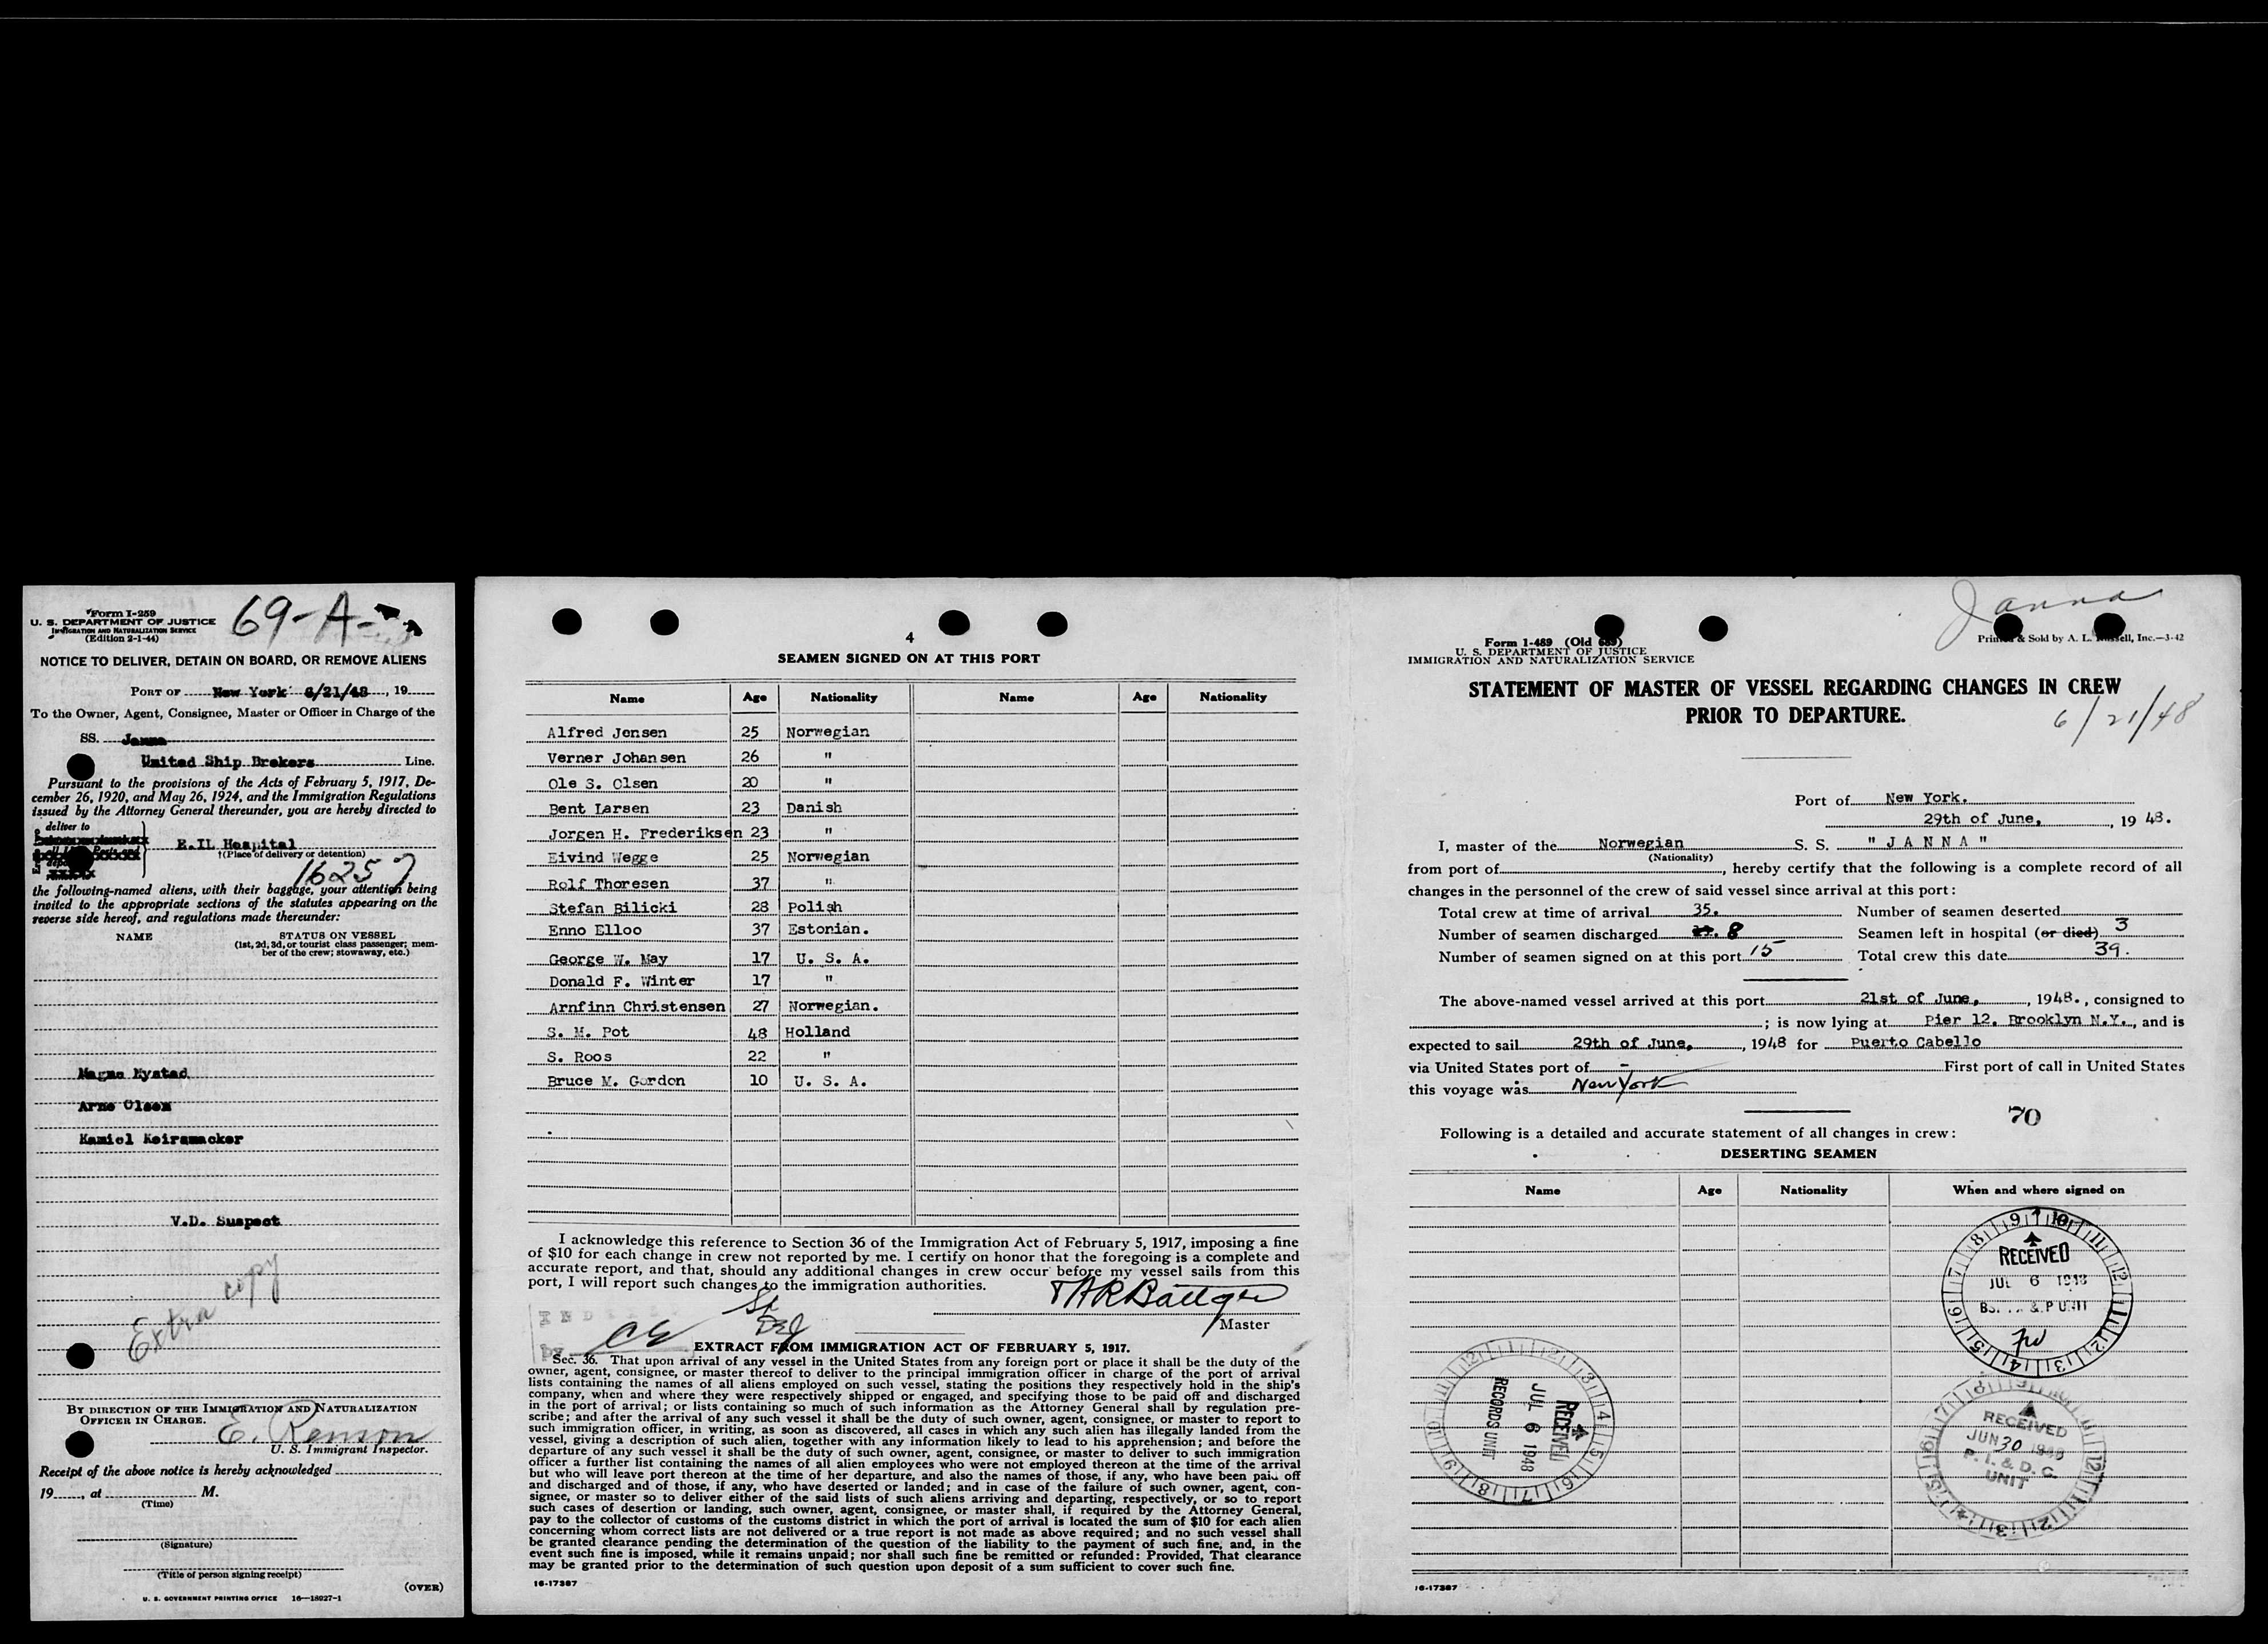 Form I-259
U. S. DEPARTMENT OF JUSTICE
IMMIGRATION AND NATURALIZATION SERVICE
(Edition 2-1-44)
69-A-
NOTICE TO DELIVER, DETAIN ON BOARD, OR REMOVE ALIENS
PORT OF New York 6/21/48, 19
To the Owner, Agent, Consignee, Master or Officer in Charge of the
SS. Janna
United Ship Brokers Line.
Pursuant to the provisions of the Acts of February 5, 1917, De-
cember 26, 1920, and May 26, 1924, and the Immigration Regulations
issued by the Attorney General thereunder, you are hereby directed to
deliver to
E.II. Hospital
†(Place of delivery or detention)
16257
the following-named aliens, with their baggage, your attention being
invited to the appropriate sections of the statutes appearing on the
reverse side hereof, and regulations made thereunder:
NAME STATUS ON VESSEL
(1st, 2d, 3d, or tourist class passenger; mem-
ber of the crew; stowaway, etc.)
Magne Mystad
Arne Olsen
Kamiel Keirsmacker
V.D. Suspect
Extra copy
BY DIRECTION OF THE IMMIGRATION AND NATURALIZATION
OFFICER IN CHARGE.
E. Renson
U. S. Immigrant Inspector.
Receipt of the above notice is hereby acknowledged
19, at M.
(Time)
(Signature)
(Title of person signing receipt)
(OVER)
U. S. GOVERNMENT PRINTING OFFICE 16—18927-1
4
SEAMEN SIGNED ON AT THIS PORT
Name Age Nationality Name Age Nationality
Alfred Jensen 25 Norwegian
Verner Johansen 26 "
Ole S. Olsen 20 "
Bent Larsen 23 Danish
Jorgen H. Frederiksen 23 "
Eivind Wegge 25 Norwegian
Rolf Thoresen 37 "
Stefan Bilicki 28 Polish
Enno Elloo 37 Estonian.
George W. May 17 U. S. A.
Donald F. Winter 17 "
Arnfinn Christensen 27 Norwegian.
S. M. Pot 48 Holland
S. Roos 22 "
Bruce M. Gordon 10 U. S. A.
I acknowledge this reference to Section 36 of the Immigration Act of February 5, 1917, imposing a fine
of $10 for each change in crew not reported by me. I certify on honor that the foregoing is a complete and
accurate report, and that, should any additional changes in crew occur before my vessel sails from this
port, I will report such changes to the immigration authorities.
Master
EXTRACT FROM IMMIGRATION ACT OF FEBRUARY 5, 1917.
Sec. 36. That upon arrival of any vessel in the United States from any foreign port or place it shall be the duty of the
owner, agent, consignee, or master thereof to deliver to the principal immigration officer in charge of the port of arrival
lists containing the names of all aliens employed on such vessel, stating the positions they respectively hold in the ship's
company, when and where they were respectively shipped or engaged, and specifying those to be paid off and discharged
in the port of arrival; or lists containing so much of such information as the Attorney General shall by regulation pre-
scribe; and after the arrival of any such vessel it shall be the duty of such owner, agent, consignee, or master to report to
such immigration officer, in writing, as soon as discovered, all cases in which any such alien has illegally landed from the
vessel, giving a description of such alien, together with any information likely to lead to his apprehension; and before the
departure of any such vessel it shall be the duty of such owner, agent, consignee, or master to deliver to such immigration
officer a further list containing the names of all alien employees who were not employed thereon at the time of the arrival
but who will leave port thereon at the time of her departure, and also the names of those, if any, who have been paid off
and discharged and of those, if any, who have deserted or landed; and in case of the failure of such owner, agent, con-
signee, or master so to deliver either of the said lists of such aliens arriving and departing, respectively, or so to report
such cases of desertion or landing, such owner, agent, consignee, or master shall, if required by the Attorney General,
pay to the collector of customs of the customs district in which the port of arrival is located the sum of $10 for each alien
concerning whom correct lists are not delivered or a true report is not made as above required; and no such vessel shall
be granted clearance pending the determination of the question of the liability to the payment of such fine, and, in the
event such fine is imposed, while it remains unpaid; nor shall such fine be remitted or refunded: Provided, That clearance
may be granted prior to the determination of such question upon deposit of a sum sufficient to cover such fine.
16-17387
Janna
Form I-489 (Old 689)
U. S. DEPARTMENT OF JUSTICE
IMMIGRATION AND NATURALIZATION SERVICE
Printed & Sold by A. L. Russell, Inc.—3-42
STATEMENT OF MASTER OF VESSEL REGARDING CHANGES IN CREW
PRIOR TO DEPARTURE.
6/21/48
Port of New York.
29th of June, 1948.
I, master of the Norwegian S. S. "JANNA"
(Nationality)
from port of, hereby certify that the following is a complete record of all
changes in the personnel of the crew of said vessel since arrival at this port:
Total crew at time of arrival 35. Number of seamen deserted
Number of seamen discharged 8 Seamen left in hospital (or died) 3
Number of seamen signed on at this port 15 Total crew this date 39.
The above-named vessel arrived at this port 21st of June, 1948., consigned to
; is now lying at Pier 12. Brooklyn N.Y., and is
expected to sail 29th of June, 1948 for Puerto Cabello
via United States port of - First port of call in United States
this voyage was New York
70
Following is a detailed and accurate statement of all changes in crew:
DESERTING SEAMEN
Name Age Nationality When and where signed on
RECEIVED
JUL 6 1948
RECEIVED
JUL 6 1948
RECORDS UNIT
RECEIVED
JUN 30 1948
P. I. & D. C.
UNIT
16-17387